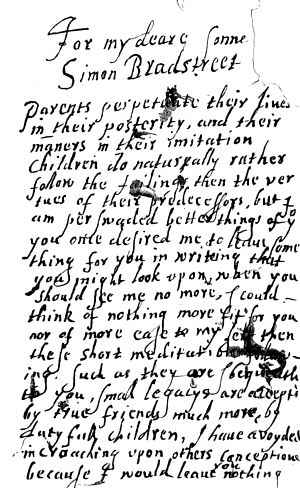 For my deare sonne
Simon Bradstreet
Parents perpetuate their lives
in their posterity, and their
maners in their imitation
Children do naturally rather
follow the failings then the ver
tues of their predecessors, but I
am perswaded better things of y
you once desired me to leave some
thing for you in writing that
you might look upon, when you
should see me no more, I could
think of nothing more fit for you
nor of more ease to my self then
these short meditations
such as they are I bequeath
to you, small legacys are accepted
by true friends much more by
duty full children, I have avoyded
incroaching upon others conceptions
because I would leave you nothing